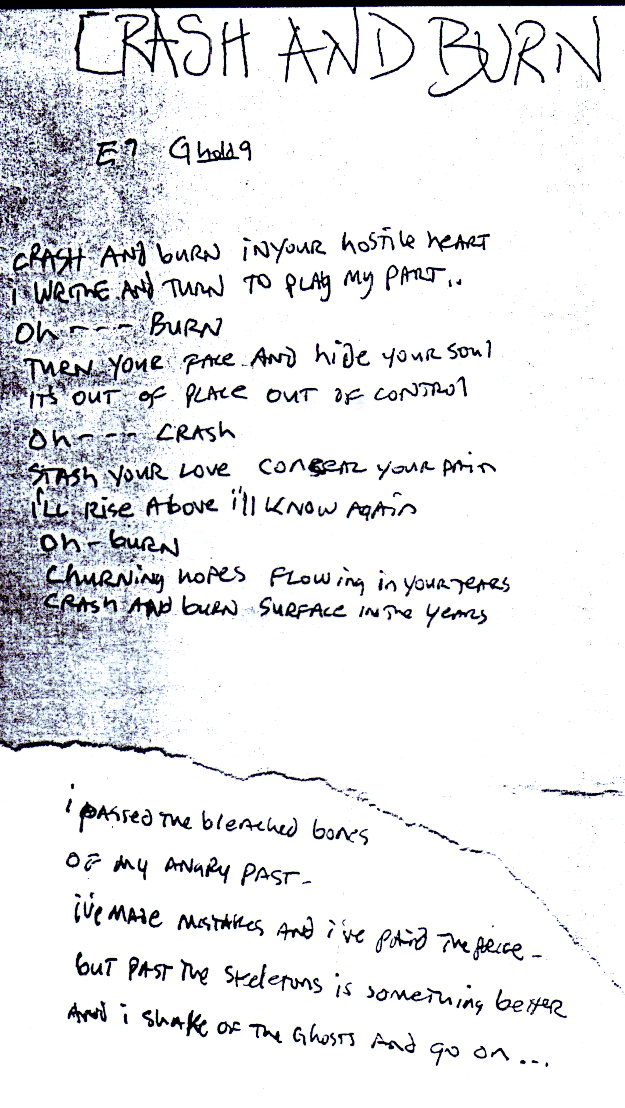 CRASH AND BURN
E7 G hold 9
CRASH AND bURN iN YOUR hostile heART
i WRITHE AND TURN TO PLAy My PART..
Oh - - - BURN
TURN YOUR FACE AND hide YOUR SOUl
IT'S OUT OF PLACE OUT OF CONTROl
Oh - - - CRASH
STASH YOUR LOVE CONCEAL YOUR PAIN
I'LL Rise Above i'll KNOW AgAiN
Oh - buRN
ChURNing hOPES FLOWing in YOUR TEARS
CRASh AND buRN SURFACE IN The YeARS
i pAssed The bleAched bones
OF My ANgRy PAST -
i've MADE MISTAKES AND i've pAid The pRice -
buT PAST The SkeleTONS is someThing beTTer
AND i ShAKE OF The GhOSTS And go on ...